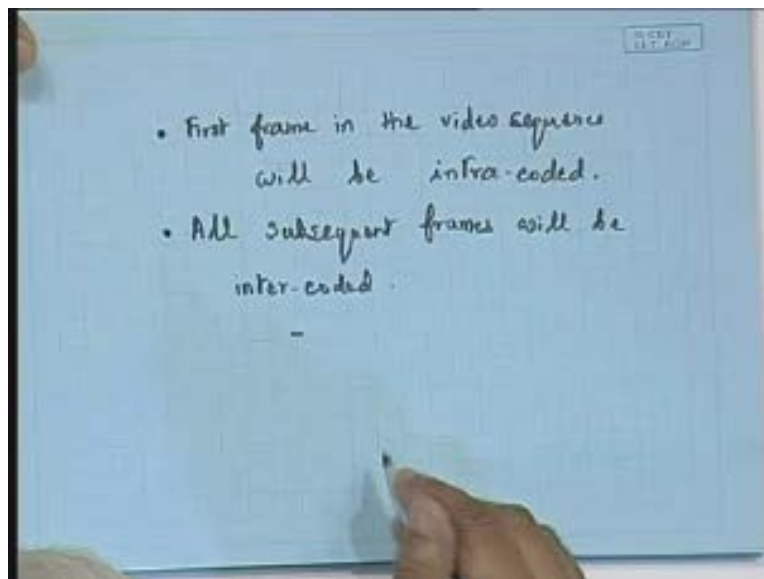 • First frame in the video sequence
will be intra-coded.
• All subsequent frames will be
inter-coded.
–